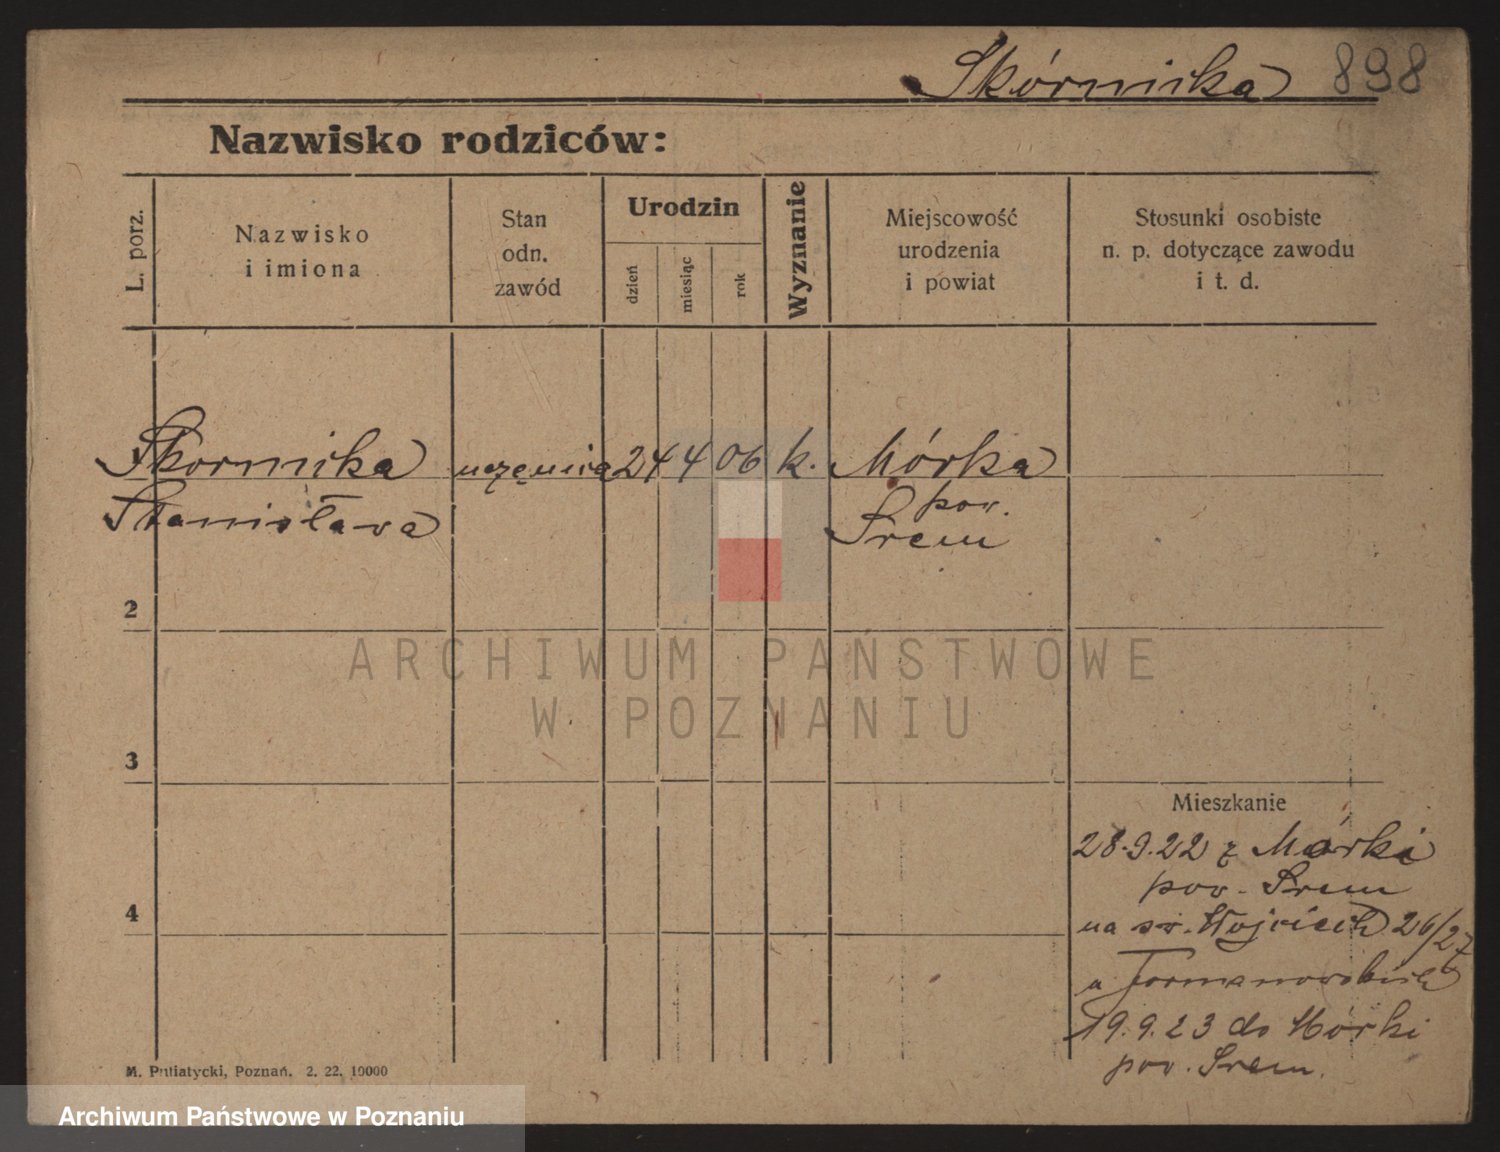 Skórnicka 898
Nazwisko rodziców:
L. porz.
Nazwisko
i imiona
Stan
odn.
zawód
Urodzin
dzień
miesiąc
rok
Wyznanie
Miejscowość
urodzenia
i powiat
Stosunki osobiste
n. p. dotyczące zawodu
i t. d.
Skornicka uczęnica 24 4 06 k. Mórka
Stanisława pow.
Śrem
2
3
4
Mieszkanie
28.9.22 z Mórki
pow. Śrem
na św. Wojciech 26/27
u
19.9.23 do Mórki
pow. Śrem.
M. Putiatycki, Poznań. 2. 22. 10000
ARCHIWUM PAŃSTWOWE
W POZNANIU
Archiwum Państwowe w Poznaniu